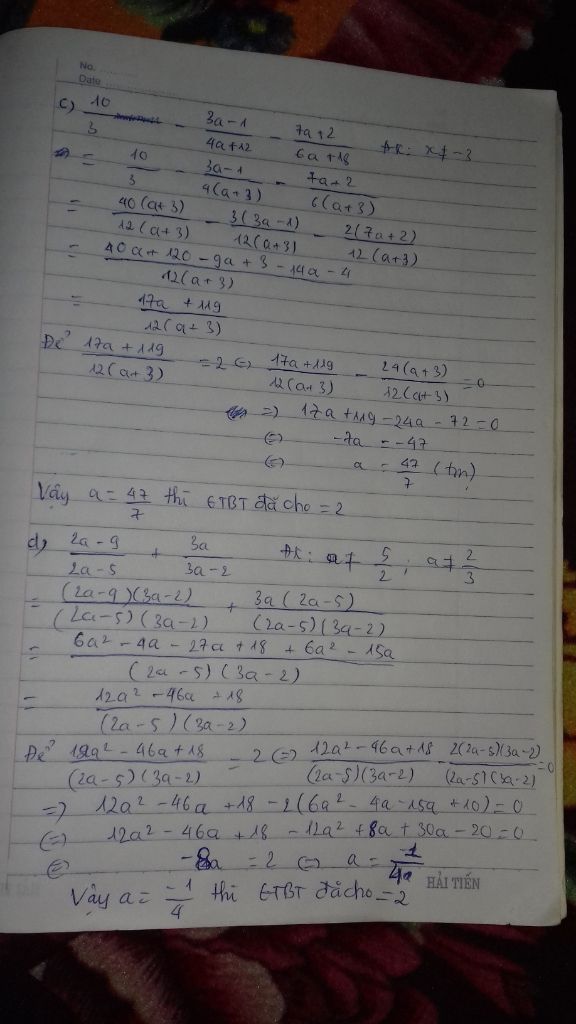 No.
Date
c) 10/3 - (3a-1)/(4a+12) - (7a+2)/(6a+18) ĐK: x ≠ -3
= 10/3 - (3a-1)/(4(a+3)) - (7a+2)/(6(a+3))
= 40(a+3)/(12(a+3)) - 3(3a-1)/(12(a+3)) - 2(7a+2)/(12(a+3))
= (40a + 120 - 9a + 3 - 14a - 4)/(12(a+3))
= (17a + 119)/(12(a+3))
Để (17a+119)/(12(a+3)) = 2 ⇔ (17a+119)/(12(a+3)) - 24(a+3)/(12(a+3)) = 0
⇒ 17a + 119 - 24a - 72 = 0
⇔ -7a = -47
⇔ a = 47/7 (tm)
Vậy a = 47/7 thì GTBT đã cho = 2
d) (2a-9)/(2a-5) + 3a/(3a-2) ĐK: a ≠ 5/2; a ≠ 2/3
= (2a-9)(3a-2)/((2a-5)(3a-2)) + 3a(2a-5)/((2a-5)(3a-2))
= (6a² - 4a - 27a + 18 + 6a² - 15a)/((2a-5)(3a-2))
= (12a² - 46a + 18)/((2a-5)(3a-2))
Để (12a² - 46a + 18)/((2a-5)(3a-2)) = 2 ⇔ (12a² - 46a + 18)/((2a-5)(3a-2)) - 2(2a-5)(3a-2)/((2a-5)(3a-2)) = 0
⇒ 12a² - 46a + 18 - 2(6a² - 4a - 15a + 10) = 0
⇔ 12a² - 46a + 18 - 12a² + 8a + 30a - 20 = 0
⇔ -8a = 2 ⇔ a = -1/4
Vậy a = -1/4 thì GTBT đã cho = 2
HẢI TIẾN